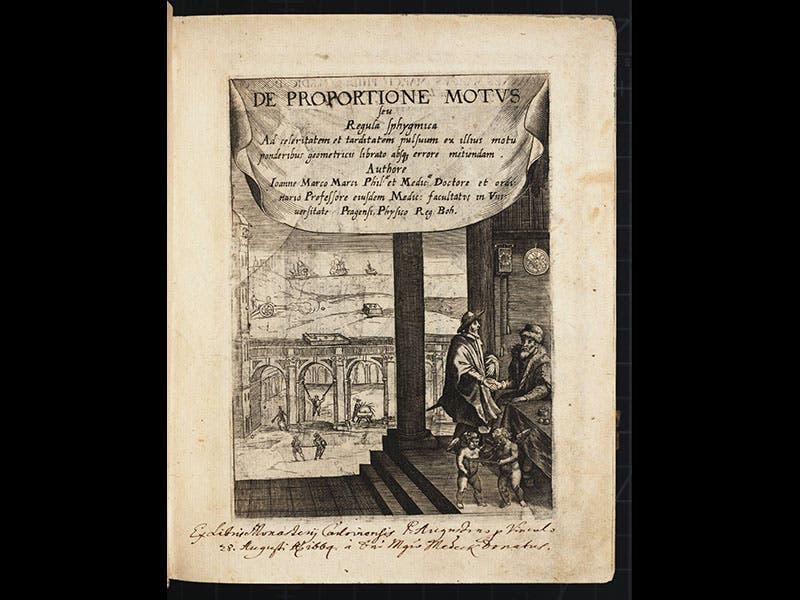 DE PROPORTIONE MOTVS
seu
Regula sphygmica
Ad celeritatem et tarditatem pulsuum ex illius motu
ponderibus geometricis librato absq; errore metiendam.
Authore
Ioanne Marco Marci Phil: et Medic: Doctore et ordi
nario Professore eiusdem Medic: facultatis in Vni
uersitate Pragensi, Physico Reg. Boh.
Ex Libris Monasterij
28. Augusti Donatus.